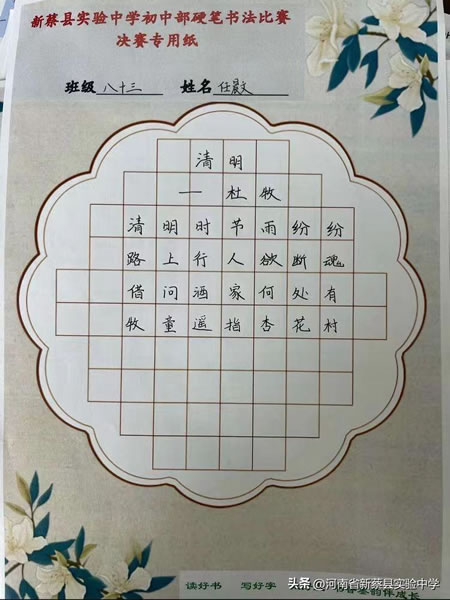 新蔡县实验中学初中部硬笔书法比赛
决赛专用纸
班级 八十三 姓名
清明
— 杜牧
清明时节雨纷纷
路上行人欲断魂
借问酒家何处有
牧童遥指杏花村
读好书 写好字
头条 @河南省新蔡县实验中学